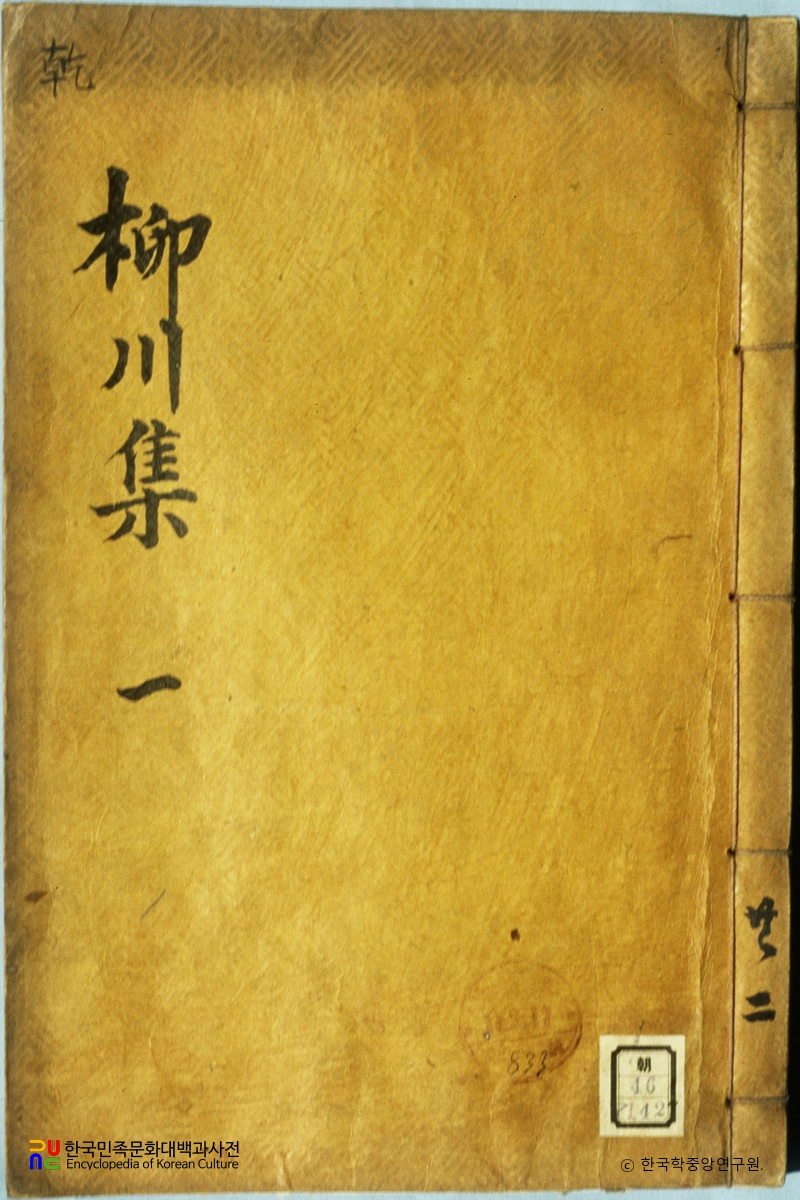 乾
柳川集 一
共 二
833
朝
46
한국민족문화대백과사전
Encyclopedia of Korean Culture
© 한국학중앙연구원.